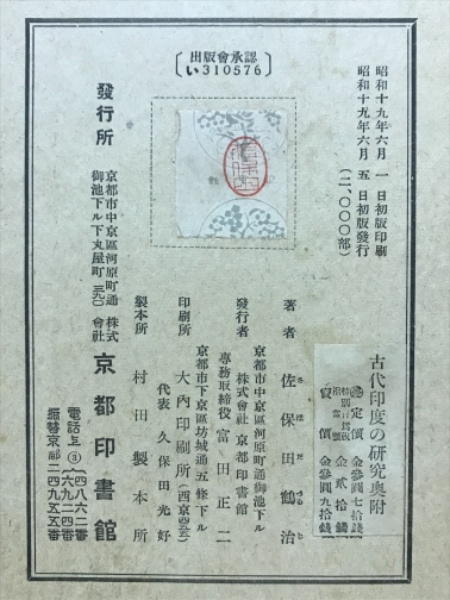 〔出版會承認
い310576〕
昭和十九年六月一日初版印刷
昭和十九年六月五日初版發行
(二、〇〇〇部)
古代印度の研究奥附
定價金參圓七拾錢
特別行爲税相當額金貳拾錢
賣價金參圓九拾錢
著者佐保田鶴治
さほだつるじ
京都市中京區河原町通御池下ル
發行者株式會社京都印書館
專務取締役富田正二
京都市下京區坊城通五條下ル
印刷所大內印刷所(西京四五)
代表久保田光好
製本所村田製本所
發行所
京都市中京區河原町通
御池下ル下丸屋町三九〇
株式會社京都印書館
電話上③{四八六二番
六九二四番
振替京都二四九五五番